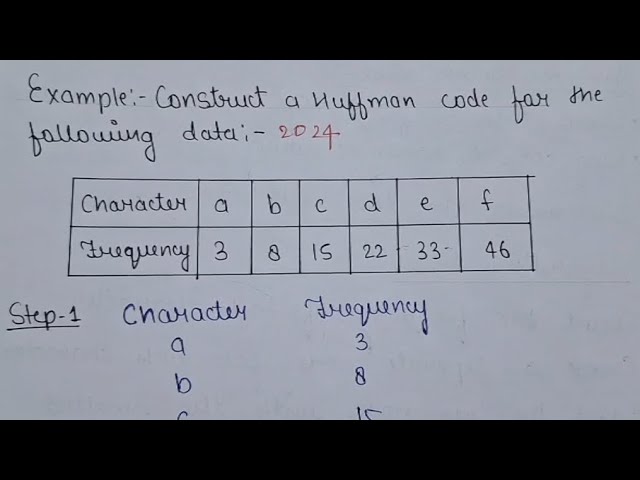 Example:- Construct a Huffman code for the
following data:- 2024
Character a b c d e f
Frequency 3 8 15 22 33 46
Step-1 Character Frequency
a 3
b 8
c 15